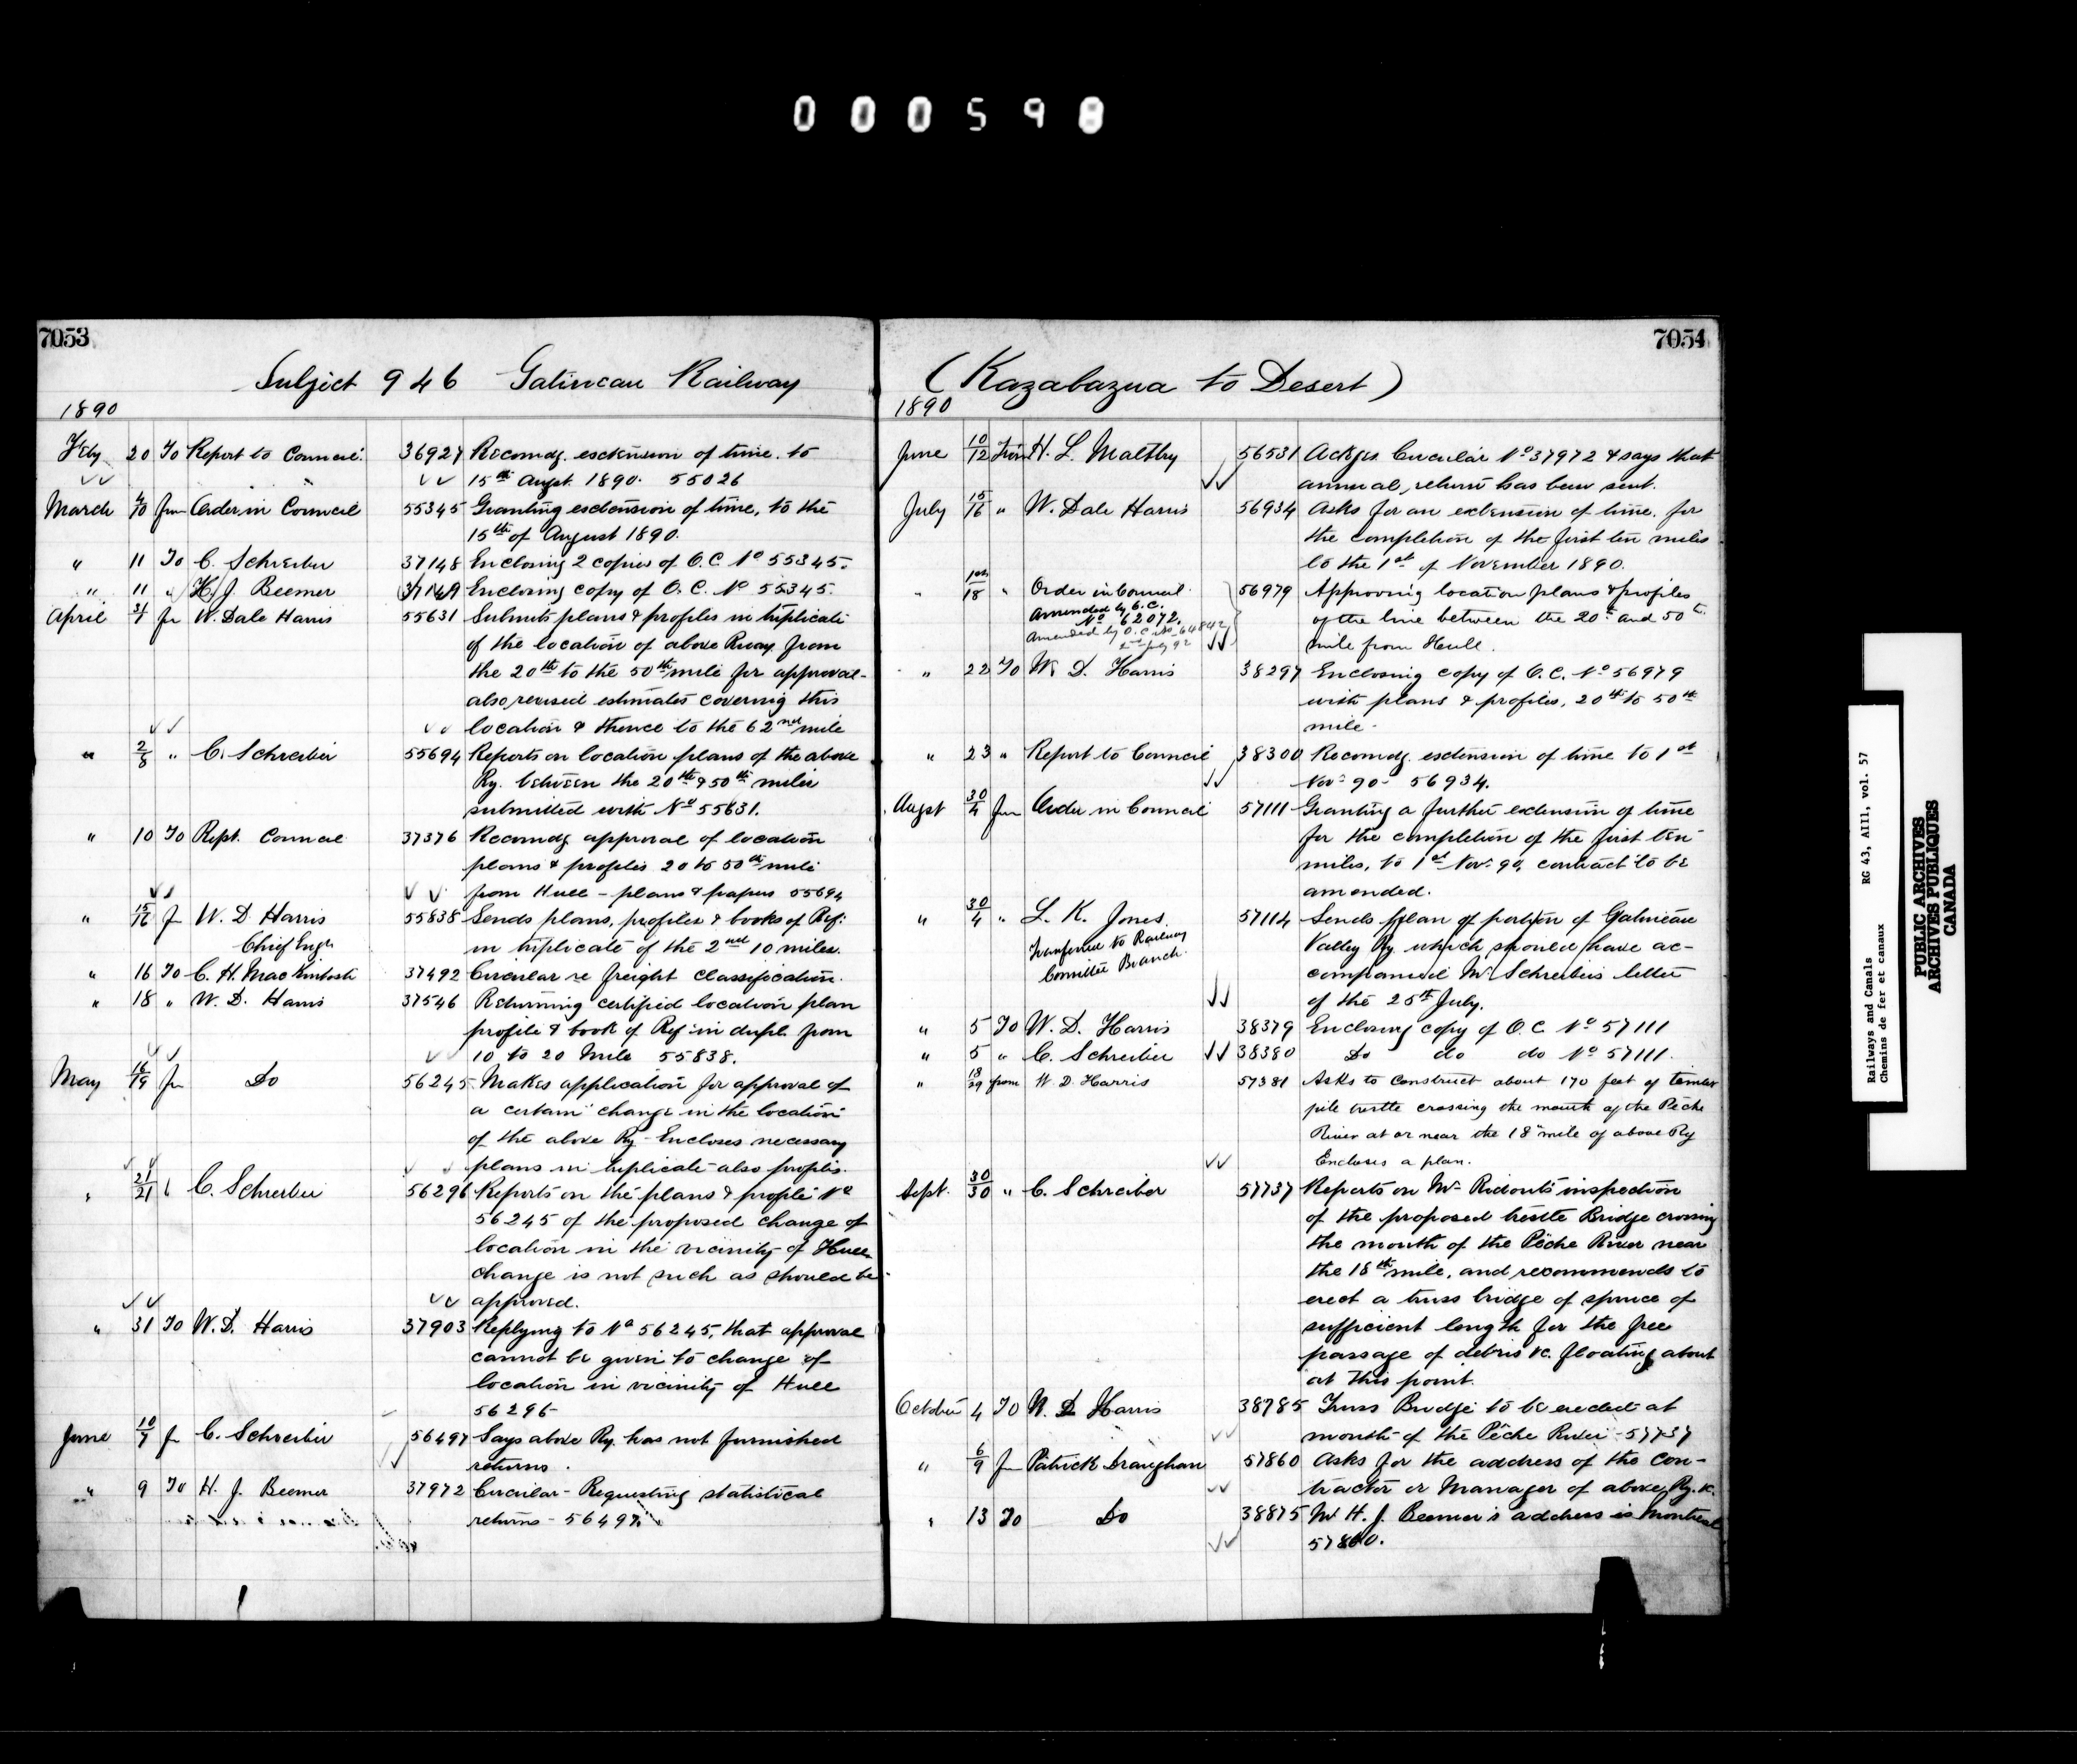 000598
7053
Subject 946 Gatineau Railway
1890
Feby 20 To Report to Council 36927 Recomdg. extension of time to
15th Augst. 1890. 55026
March 4/10 fm Order in Council 55345 Granting extension of time, to the
15th of August 1890.
" 11 To C. Schreiber 37148 Enclosing 2 copies of O.C. No 55345.
" 11 " H. J. Beemer 37149 Enclosing copy of O.C. No 55345.
April 3/4 fr W. Dale Harris 55631 Submits plans & profiles in triplicate
of the location of above Rway from
the 20th to the 50th mile for approval-
also revised estimates covering this
location & thence to the 62nd mile
" 2/8 " C. Schreiber 55694 Reports on location plans of the above
Ry. between the 20th & 50th miles
submitted with No 55631.
" 10 To Rept. Council 37376 Recomdg approval of location
plans & profiles 20 to 50th mile
from Hull - plans & papers 55694
" 15/16 f W. D Harris 55838 Sends plans, profiles & books of Ref:
Chief Engr in triplicate of the 2nd 10 miles.
" 16 To C. H. MacKintosh 37492 Circular re freight classification.
" 18 " W. D. Harris 37546 Returning certified location plan
profile & book of Ref in dupl. from
10 to 20 Mile 55838.
May 16/19 fr Do 56245 Makes application for approval of
a certain change in the location
of the above Ry - Encloses necessary
plans in triplicate also profiles.
" 21/21 C. Schreiber 56296 Reports on the plans & profile No
56245 of the proposed change of
location in the vicinity of Hull
change is not such as should be
approved.
" 31 To W. D. Harris 37903 Replying to No 56245, that approval
cannot be given to change of
location in vicinity of Hull
56296
June 10/7 f C. Schreiber 56497 Says above Ry. has not furnished
returns.
" 9 To H. J. Beemer 37972 Circular - Requesting statistical
returns - 56497
7054
(Kazabazua to Desert)
1890
June 10/12 From H. L. Maltby 56531 Ackgs Circular No 37972 & says that
annual return has been sent.
July 15/16 " W. Dale Harris 56934 Asks for an extension of time for
the completion of the first ten miles
to the 1st of November 1890.
" 18 " Order in Council 56979 Approving location plans & profiles
Amended by O.C. No 62072. of the line between the 20th and 50th
Amended by O.C. No 64842 2nd July 92 mile from Hull.
" 22 To W. D. Harris 38297 Enclosing copy of O.C. No 56979
with plans & profiles, 20th to 50th
mile.
" 23 " Report to Council 38300 Recomdg. extension of time to 1st
Nov 90 - 56934.
Augst 30/4 fm Order in Council 57111 Granting a further extension of time
for the completion of the first ten
miles, to 1st Nov. 90, contract to be
amended.
" 30/4 " L. K. Jones 57114 Sends plan of portion of Gatineau
Transferred to Railway Valley Ry. which should have ac-
Committee Branch. companied Mr Schreibers letter
of the 25th July.
" 5 To W. D. Harris 38379 Enclosing copy of O.C. No 57111
" 5 " C. Schreiber 38380 Do do do No 57111.
" 18/29 from W. D. Harris 57381 Asks to construct about 170 feet of timber
pile trestle crossing the mouth of the Pêche
River at or near the 18 mile of above Ry
Encloses a plan.
Sept. 30/30 " C. Schreiber 57737 Reports on Mr Ridouts inspection
of the proposed trestle Bridge crossing
the mouth of the Pêche River near
the 18th mile, and recommends to
erect a truss bridge of spruce of
sufficient length for the free
passage of debris &c. floating about
at this point.
October 4 To W. D Harris 38785 Truss Bridge to be erected at
mouth of the Pêche River - 57737
" 6/9 fm Patrick Draughan 57860 Asks for the address of the con-
tractor or Manager of above Ry. &c.
" 13 To Do 38875 Mr H. J. Beemer's address is Montreal
57860.
Railways and Canals RG 43, AIII, vol. 57
Chemins de fer et canaux
PUBLIC ARCHIVES
ARCHIVES PUBLIQUES
CANADA